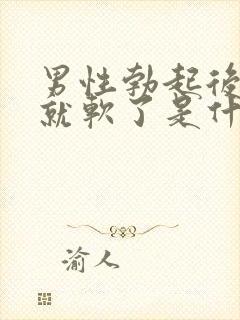 男性勃起後
就軟了是什
渝人